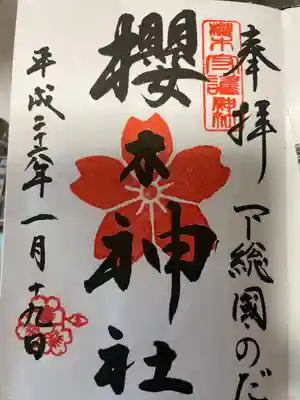 奉拝
下総國のだ
櫻木神社
平成二十六年一月十九日